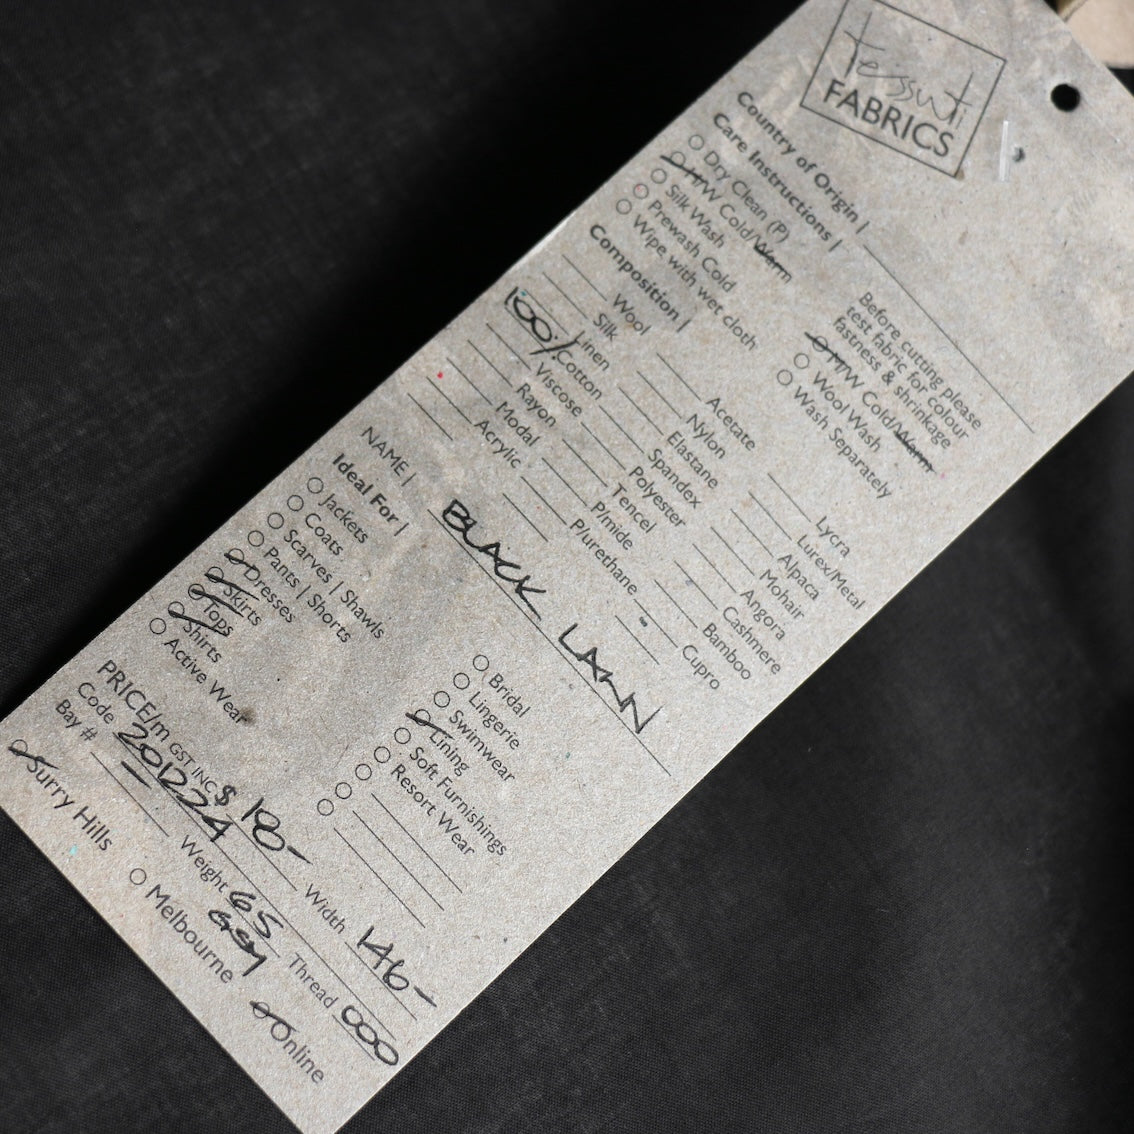 tessuti
FABRICS
Country of Origin |
Care Instructions |
Dry Clean (P)
H/W Cold/Warm
Silk Wash
Prewash Cold
Wipe with wet cloth
Before cutting please
test fabric for colour
fastness & shrinkage
M/W Cold/Warm
Wool Wash
Wash Separately
Composition |
Wool
Silk
Linen
100% Cotton
Viscose
Rayon
Modal
Acrylic
Acetate
Nylon
Elastane
Spandex
Polyester
Tencel
P/mide
P/urethane
Lycra
Lurex/Metal
Alpaca
Mohair
Angora
Cashmere
Bamboo
Cupro
NAME | BLACK LAWN
Ideal For |
Jackets
Coats
Scarves | Shawls
Pants | Shorts
Dresses
Skirts
Tops
Shirts
Active Wear
Bridal
Lingerie
Swimwear
Lining
Soft Furnishings
Resort Wear
PRICE/m GST INC $ 18-
Width 146-
Code 201224
Weight 65 GSM
Thread 000
Bay #
Surry Hills
Melbourne
Online